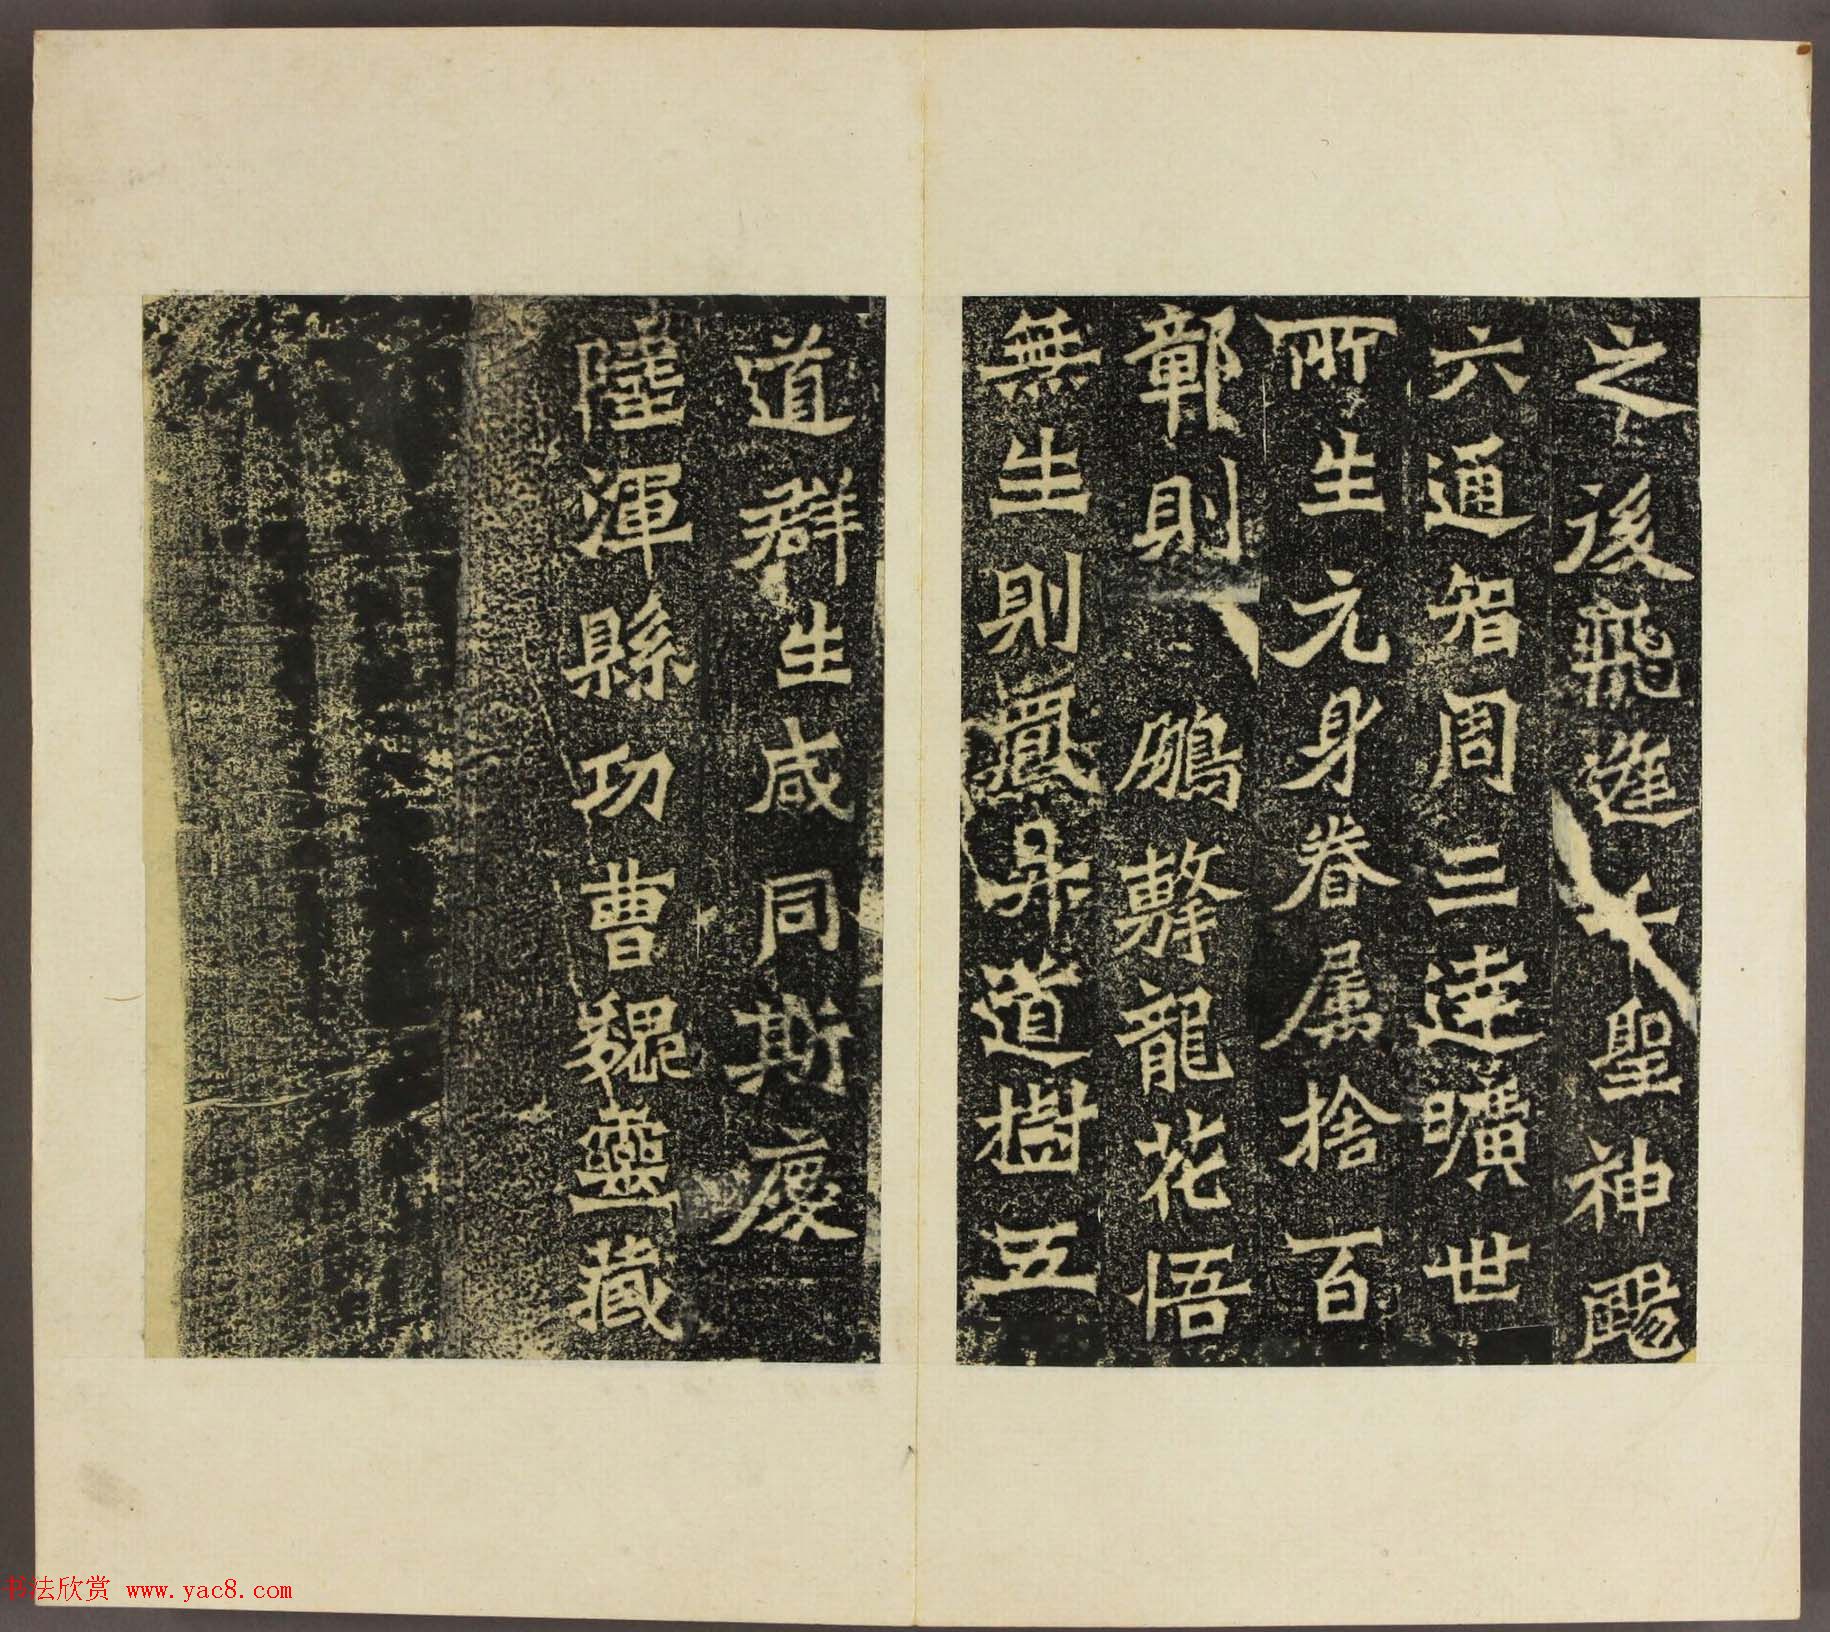 之後飛進十聖神颺
六通智周三達曠世
所生元身眷属捨百
鄣則鵬擊龍花悟
無生則道樹五
道群生咸同斯慶
陸渾縣功曹魏靈藏
书法欣赏 www.yac8.com